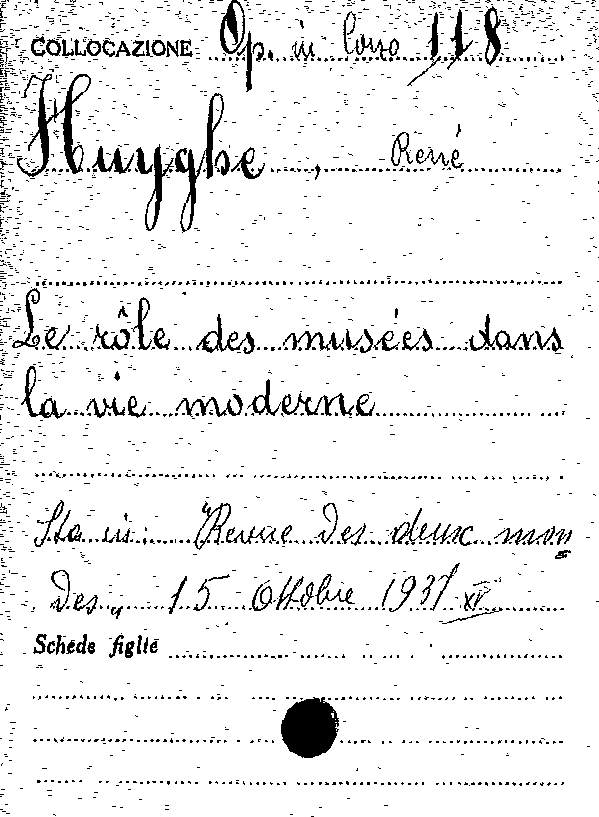 COLLOCAZIONE Op. in Corso 118
Huyghe, René
Le rôle des musées dans
la vie moderne
Sta in: "Revue des deux mon
des" 15 Ottobre 1937 XV
Schede figlie